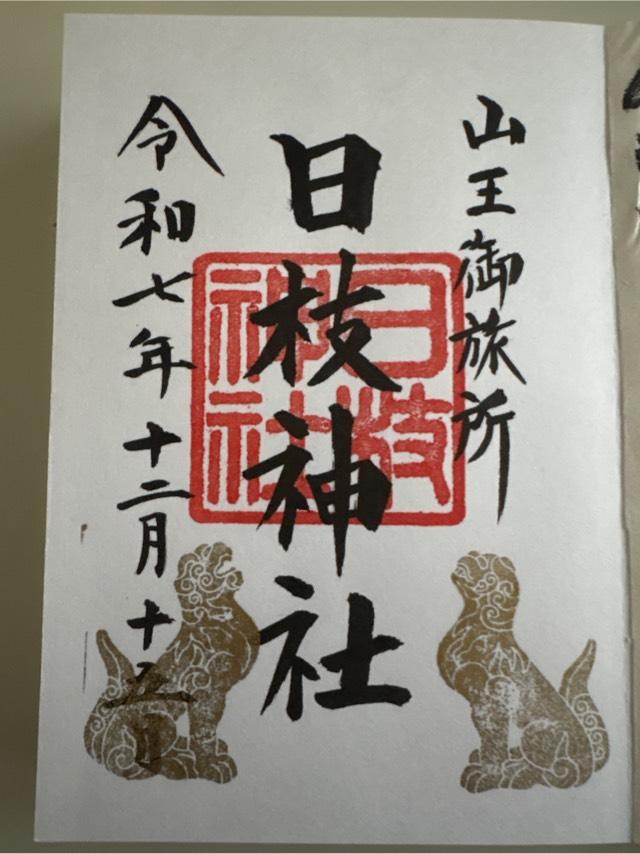 山王御旅所
日枝神社
日枝神社
令和七年十二月十五日